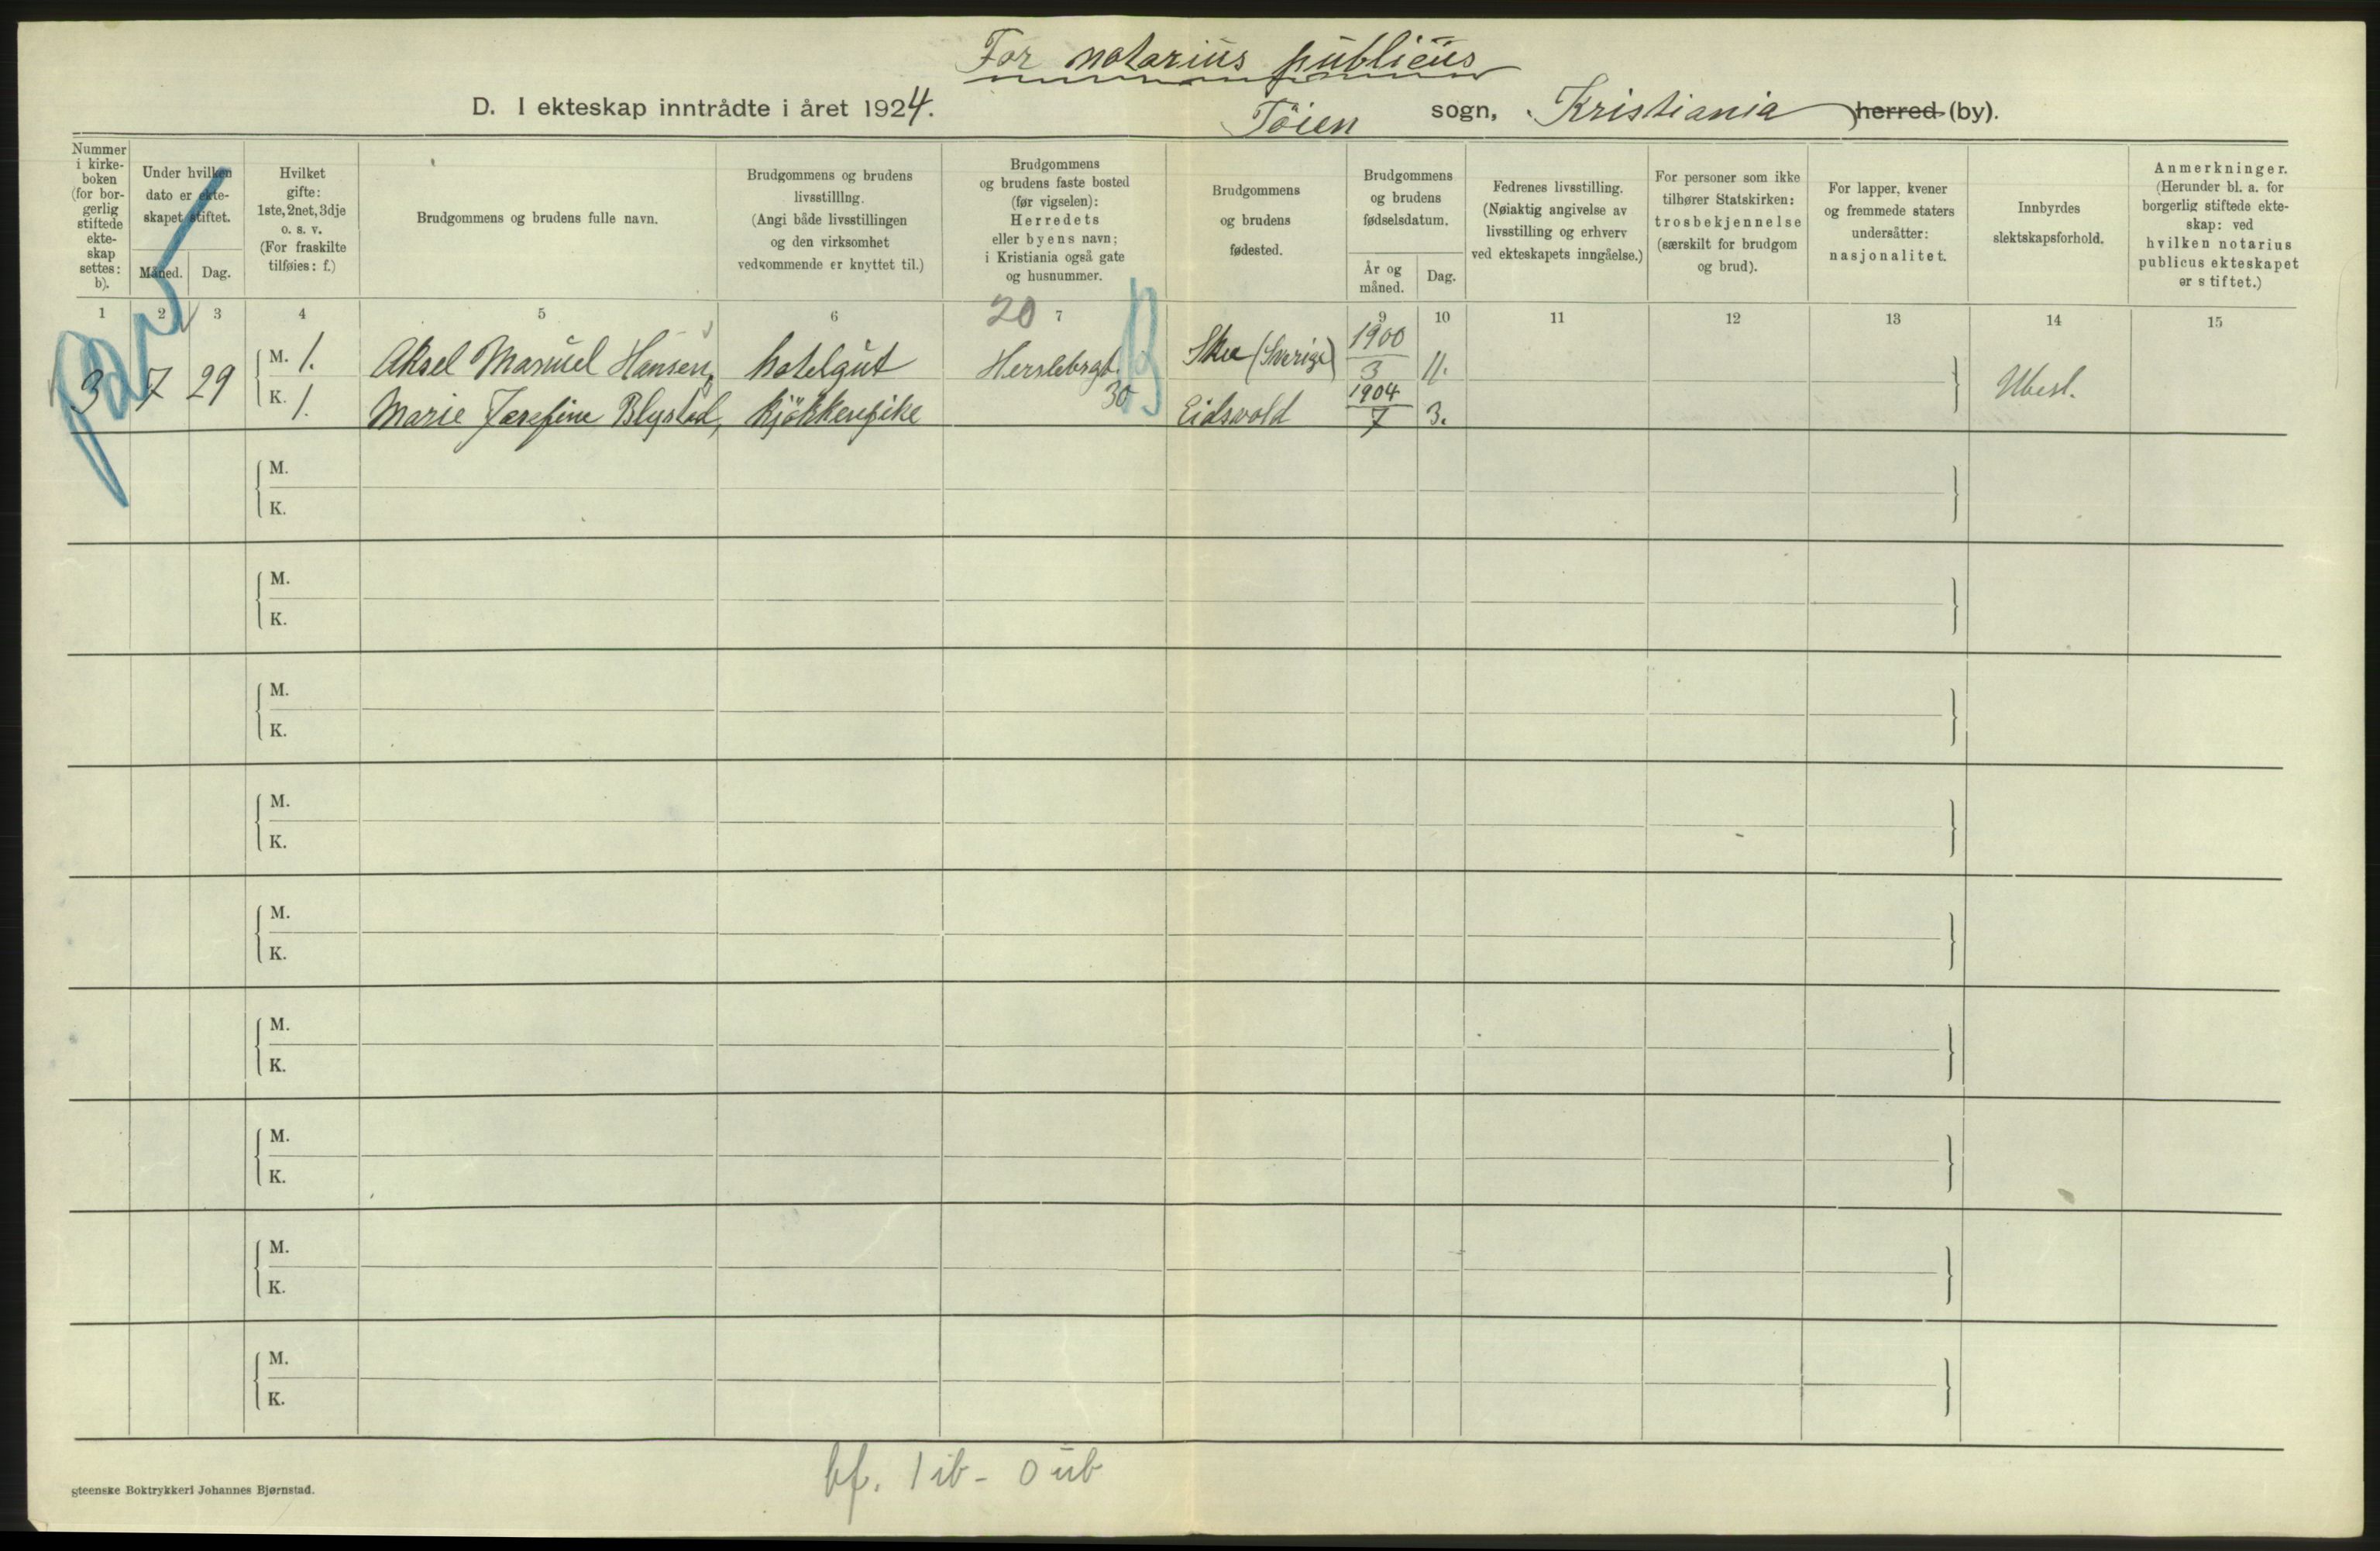 For notarius publicus
D. I ekteskap inntrådte i året 1924. Töien sogn, Kristiania herred (by).
Nummer i kirke-boken (for bor-gerlig stiftede ekte-skap settes: b).
Under hvilken dato er ekte-skapet stiftet.
Måned. Dag.
Hvilket gifte: 1ste, 2net, 3dje o. s. v. (For fraskilte tilføies: f.)
Brudgommens og brudens fulle navn.
Brudgommens og brudens livsstilllng. (Angi både livsstillingen og den virksomhet vedkommende er knyttet til.)
Brudgommens og brudens faste bosted (før vigselen): Herredets eller byens navn; i Kristiania også gate og husnummer.
Brudgommens og brudens fødested.
Brudgommens og brudens fødselsdatum.
År og måned. Dag.
Fedrenes livsstilling. (Nøiaktig angivelse av livsstilling og erhverv ved ekteskapets inngåelse.)
For personer som ikke tilhører Statskirken: trosbekjennelse (særskilt for brudgom og brud).
For lapper, kvener og fremmede staters undersåtter: nasjonalitet.
Innbyrdes slektskapsforhold.
Anmerkninger. (Herunder bl. a. for borgerlig stiftede ekte-skap: ved hvilken notarius publicus ekteskapet er stiftet.)
1 2 3 4 5 6 20 7 9 10 11 12 13 14 15
3 7 29 M. 1. Aksel Manuel Hansen, hotelgut Herslebsgt. (Sverige) 1900 3 11. Ubesl.
K. 1. Marie Josefine Blystad, kjökkenpike 30 Eidsvold 1904 7 3.
M.
K.
M.
K.
M.
K.
M.
K.
M.
K.
M.
K.
M.
K.
M.
K.
M.
K.
bf. 1 ib - 0 ub
steenske Boktrykkeri Johannes Bjørnstad.